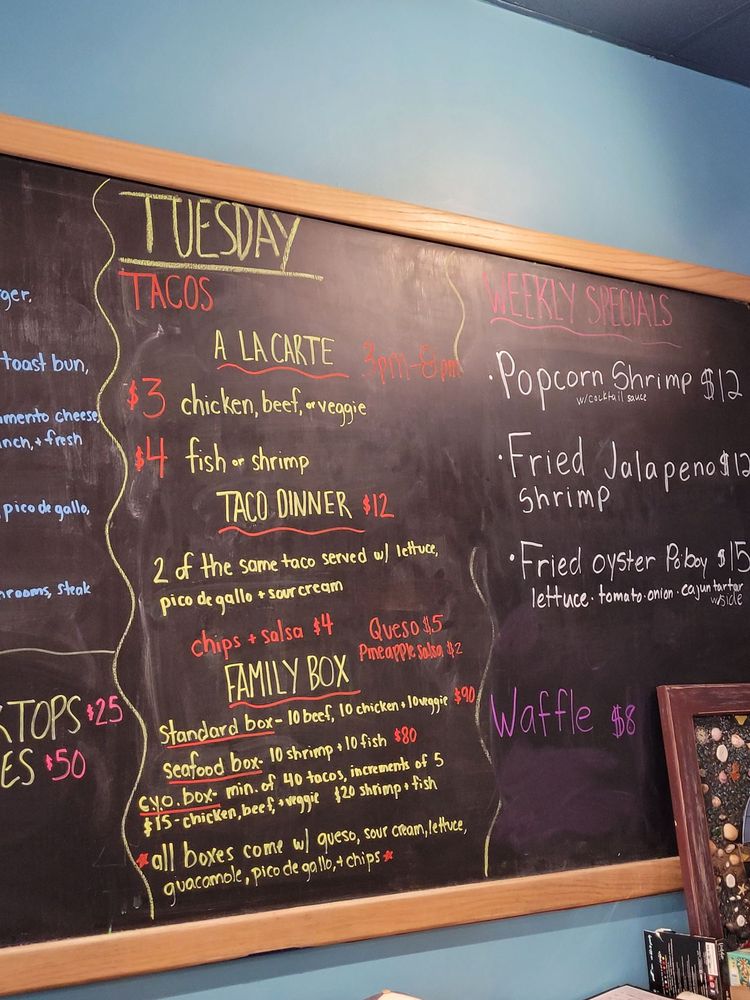 ger,
toast bun,
amento cheese,
nch, + fresh
pico de gallo,
hrooms, steak
KTOPS $25
ES $50
TUESDAY
TACOS
A LA CARTE 3pm-8pm
$3 chicken, beef, or veggie
$4 fish or shrimp
TACO DINNER $12
2 of the same taco served w/ lettuce,
pico de gallo + sour cream
chips + salsa $4 Queso $5
Pineapple salsa $2
FAMILY BOX
standard box- 10 beef, 10 chicken + 10 veggie $90
seafood box- 10 shrimp + 10 fish $80
c.y.o. box- min. of 40 tacos, increments of 5
$15- chicken, beef, + veggie $20 shrimp + fish
*all boxes come w/ queso, sour cream, lettuce,
guacamole, pico de gallo, + chips*
WEEKLY SPECIALS
·Popcorn Shrimp $12
w/cocktail sauce
·Fried Jalapeno $12
shrimp
·Fried oyster Po·boy $15
lettuce · tomato · onion · cajun tartar
w/side
Waffle $8